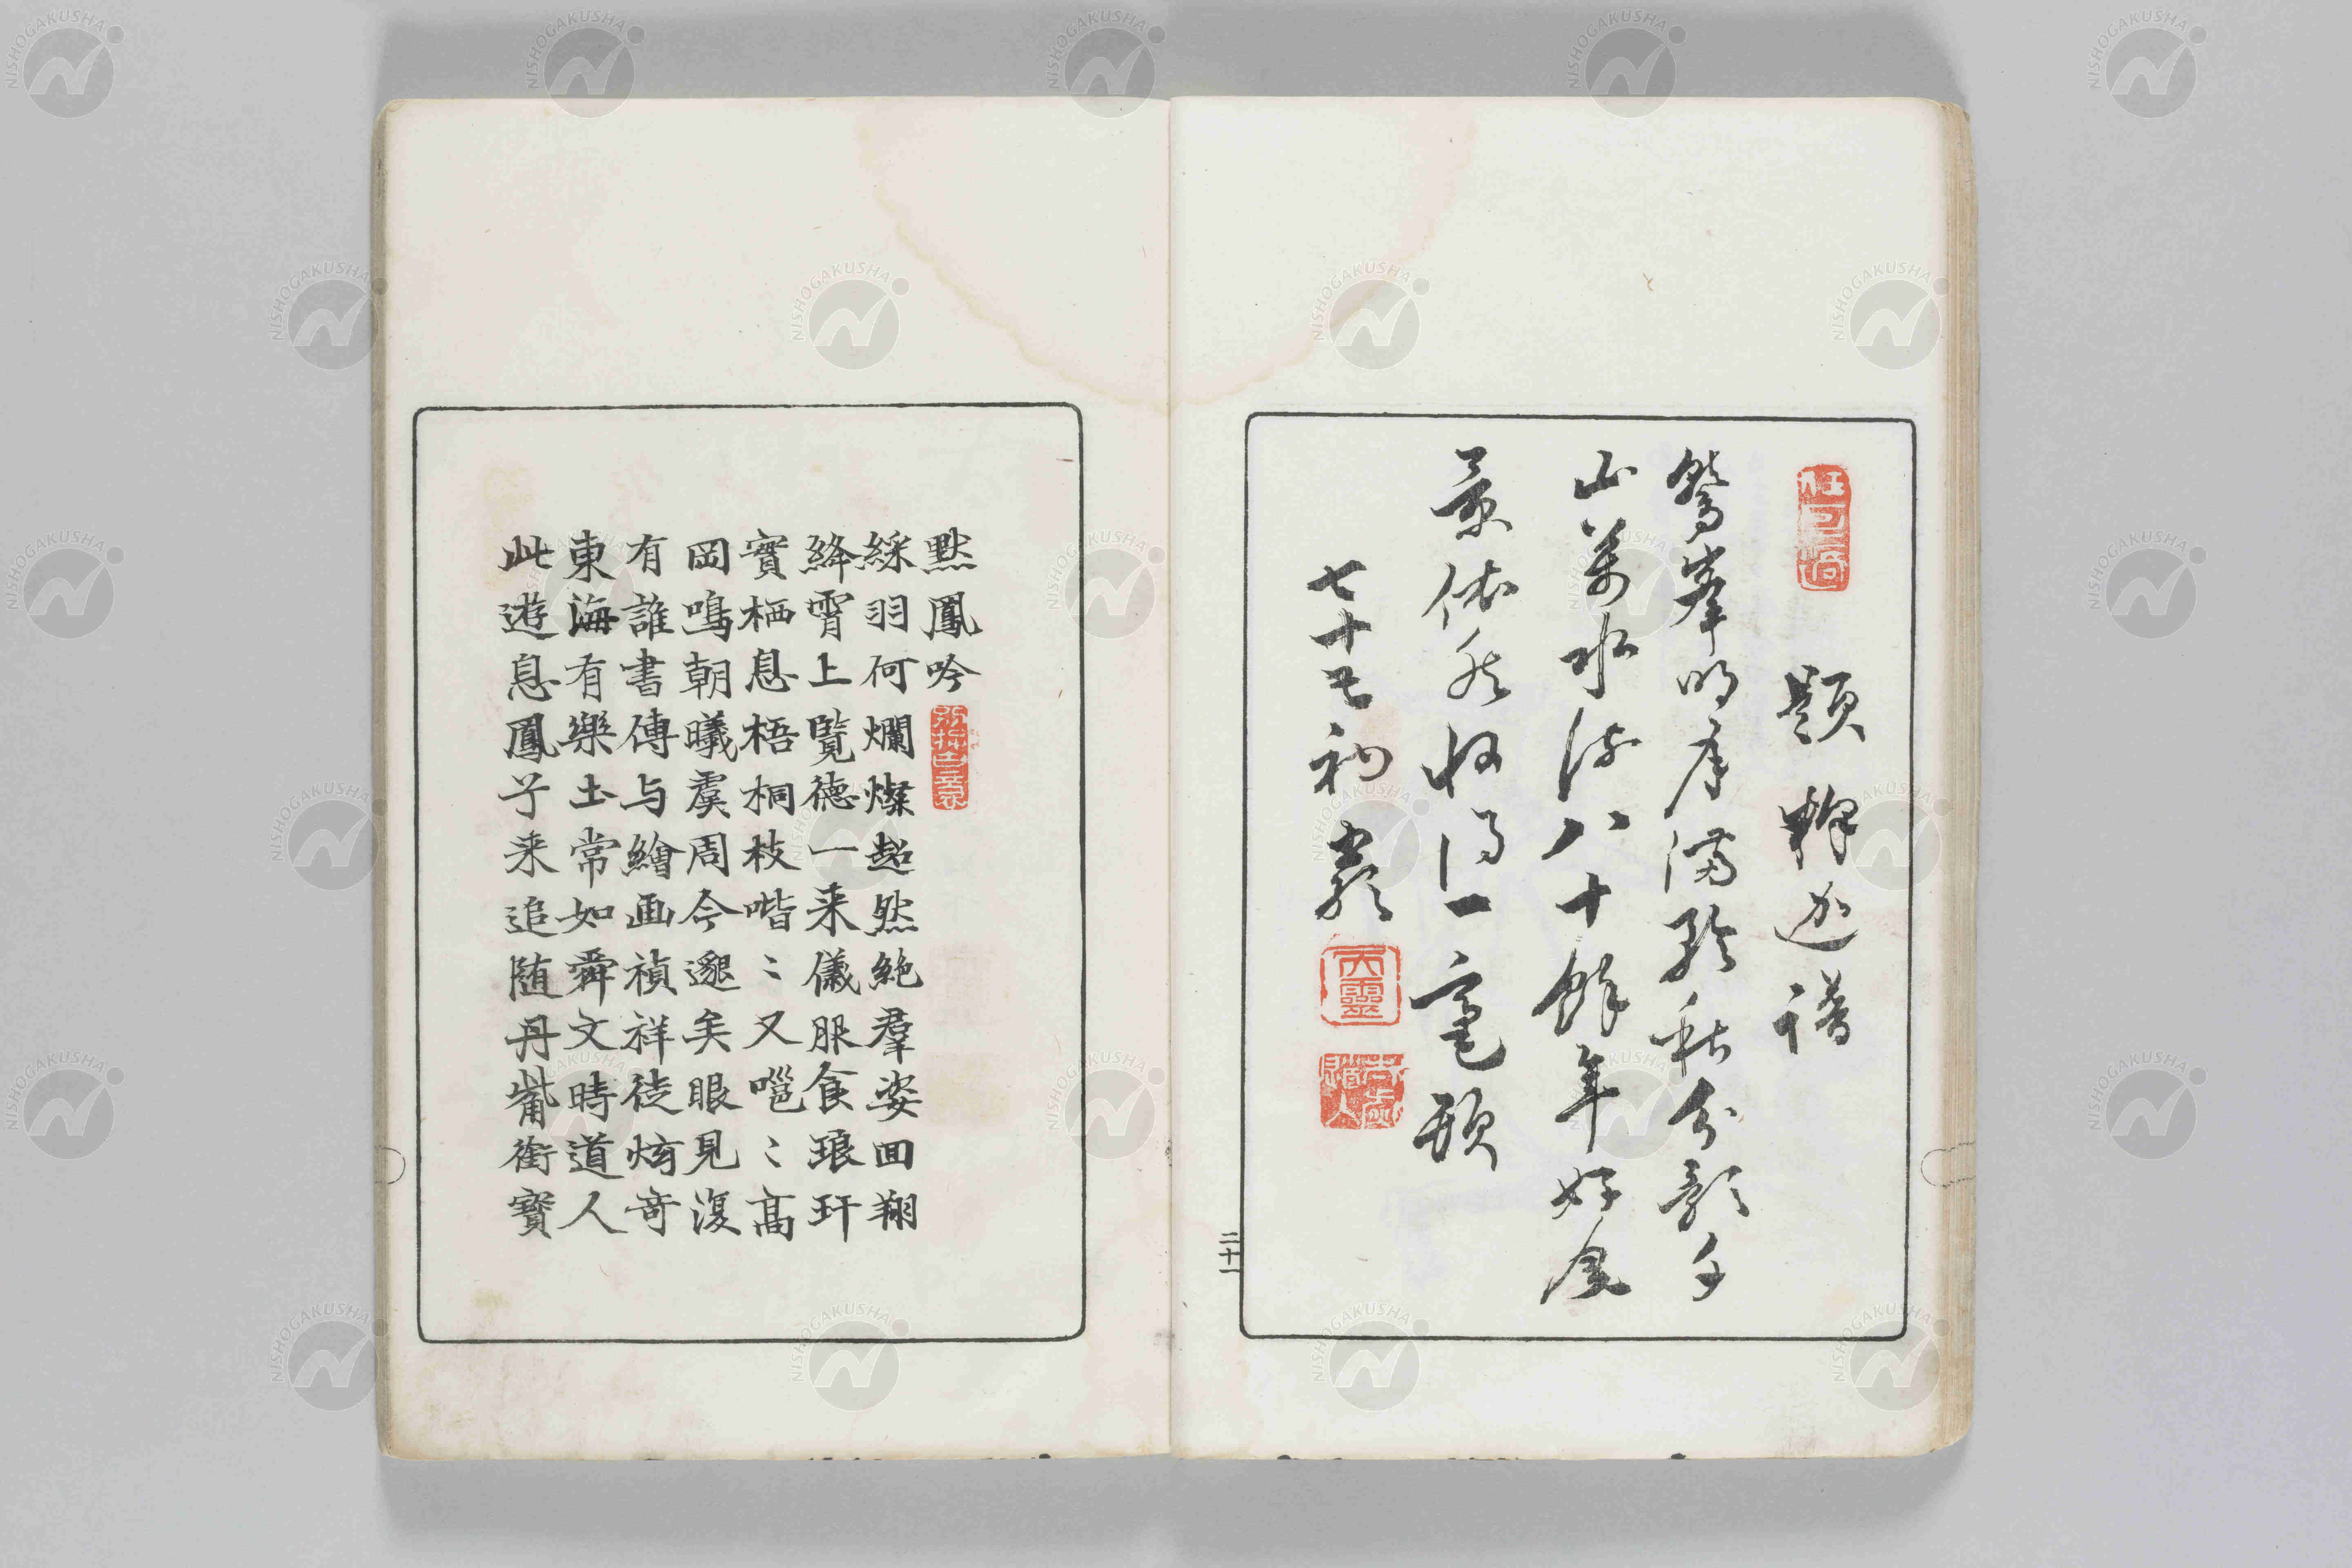 題釋迦譜
鷲峯明月滿輪秋分影千
山萬水流八十餘年好風
景依然收得一毫頭
七十衲
天靈
二十一
黙鳳吟
綵羽何爛燦超然絶羣姿回翔
絳霄上覽德一来儀服食琅玕
實栖息梧桐枝喈〻又噰〻高
岡鳴朝曦虞周今邈矣眼見復
有誰書傳与繪画禎祥徒炫奇
東海有樂土常如舜文時道人
此遊息鳳子来追随丹觜銜寶
NISHOGAKUSHA